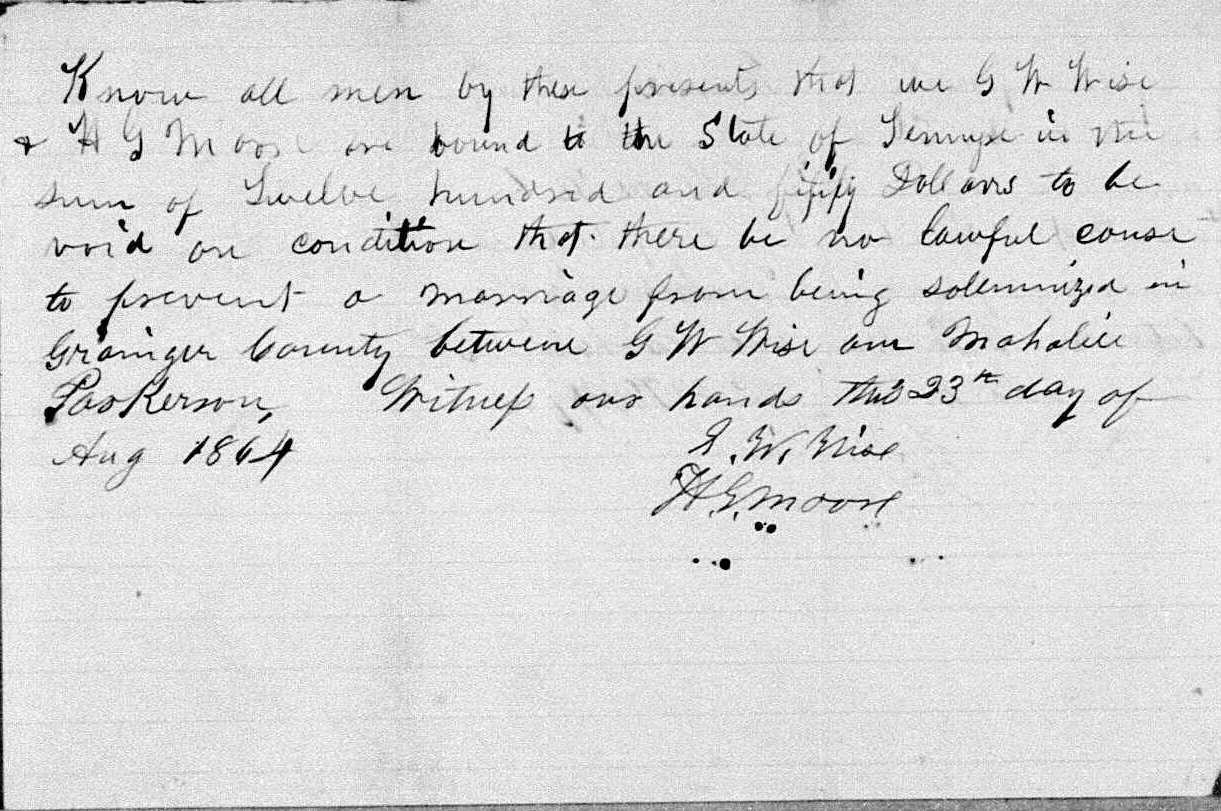 Know all men by these presents that we G W Wise
& H G Moore are bound to the State of in the
sum of Twelve hundred and fifty Dollars to be
void on condition that there be no lawful cause
to prevent a marriage from being solemnized in
Grainger County between G W Wise and
Witness our hands this 23th day of
Aug 1864
G. W. Wise
H. G. Moore